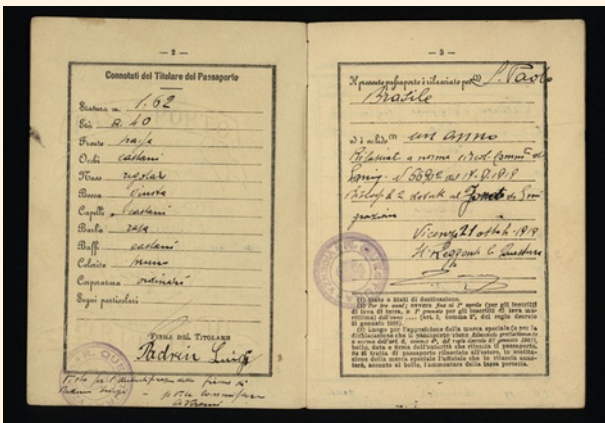 — 2 —
Connotati del Titolare del Passaporto
Statura m. 1.62
Età a. 40
Fronte bassa
Occhi castani
Naso regolare
Bocca giusta
Capelli castani
Barba rasa
Baffi castani
Colorito bruno
Corporatura ordinaria
Segni particolari
FIRMA DEL TITOLARE
Padrin Luigi
Visto per l'autentificazione della firma di
— 3 —
Il presente passaporto è rilasciato per (1) S. Paolo
Brasile
ed è valido (2) un anno
Vicenza 21 ottob. 1919
Il Reggente la Questura
(1) Stato o Stati di destinazione.
(2) Per tre anni; ovvero fino al 1° aprile (per gli inscritti
di leva di terra, o 1° gennaio per gli inscritti di leva ma-
rittima) dell'anno .... (art. 2, comma 2°, del regio decreto
31 gennaio 1901).
(3) Luogo per l'apposizione della marca speciale (o per la
dichiarazione che il passaporto viene rilasciato gratuitamente
bollo, data e firma dell'autorità che rilascia il passaporto.
Se si tratta di passaporto rilasciato all'estero, in sostitu-
zione della marca speciale l'ufficiale che lo rilascia anno-
terà, accanto al bollo, l'ammontare della tassa percetta.